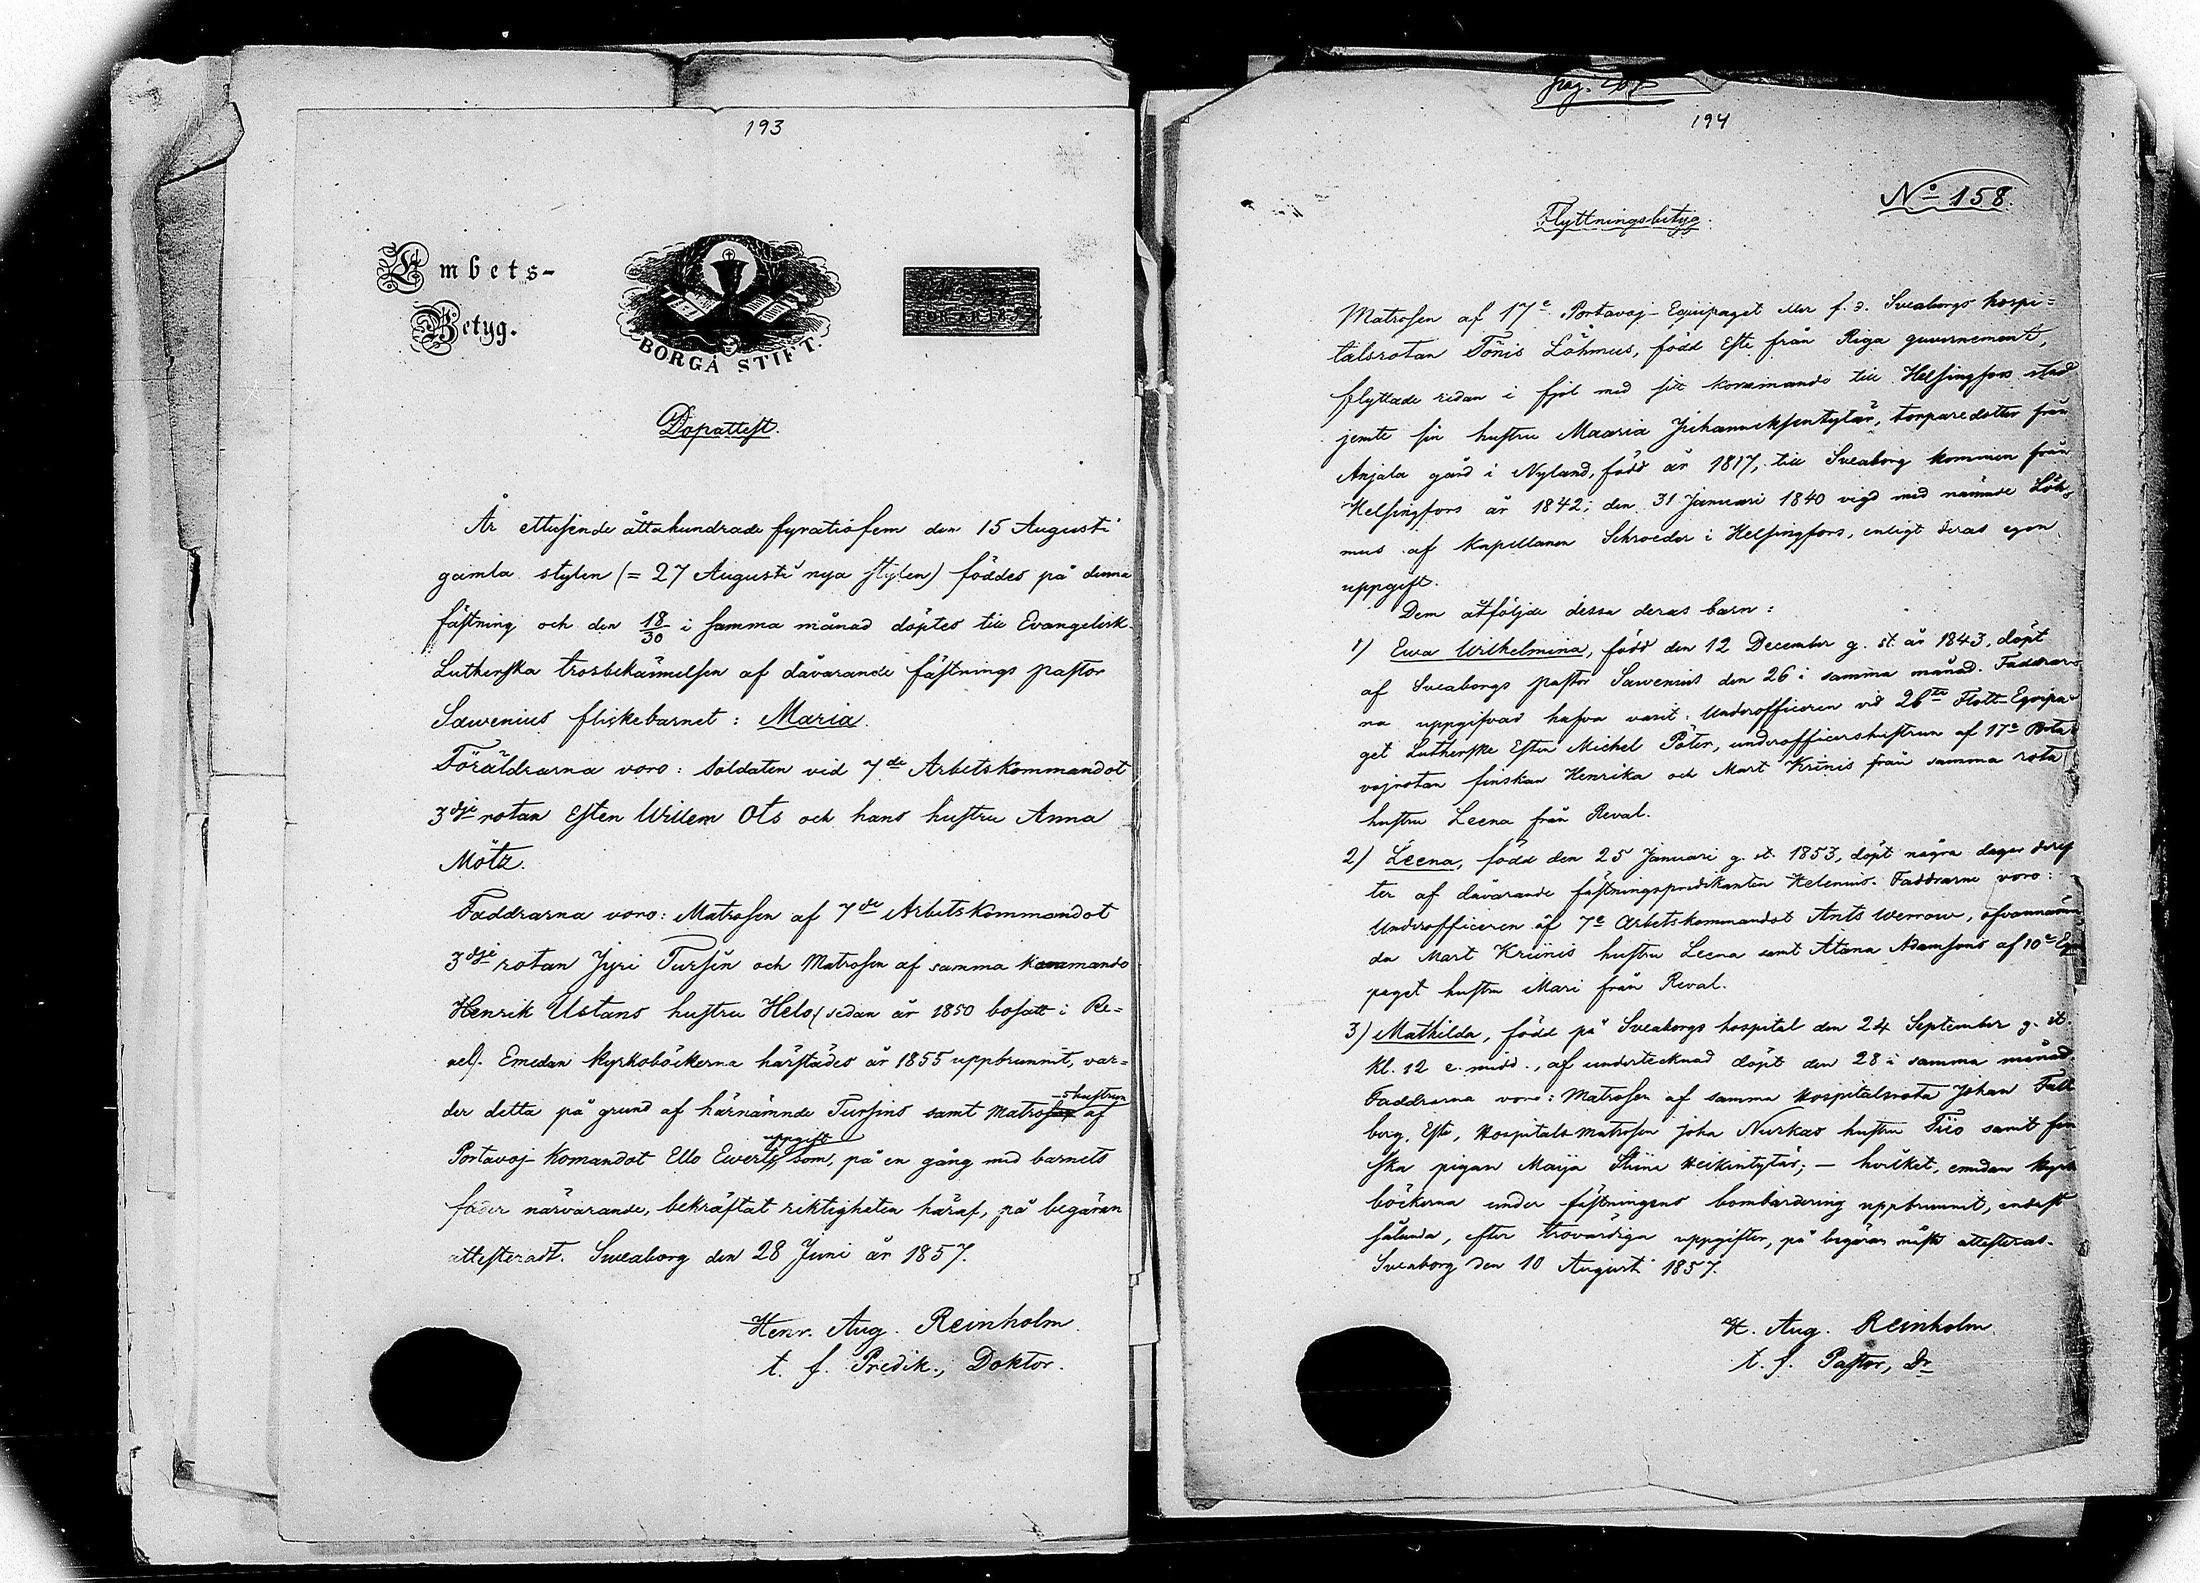 193
Embets-
Betyg.
BORGÅ STIFT.
Dopattest.
År ettusende åttahundrade fyratiofem den 15 Augusti
gamla stylen (= 27 Augusti nya stylen) föddes på denna
fästning och den 18/30 i samma månad döptes till Evangelisk-
Lutherska trosbekännelsen af dåvarande fästnings pastor
Sawenius flickebarnet: Maria.
Föräldrarna voro: Soldaten vid 7de Arbetskommandot
3dje rotan Esten Willem Ots och hans hustru Anna
Mötz.
Faddrarna voro: Matrosen af 7de Arbetskommandot
3dje rotan Jyri Tursin och Matrosen af samma kommando
Henrik Ustans hustru Helo (sedan år 1850 bosatt i Re=
vel). Emedan kyrkoböckerna härstädes år 1855 uppbrunnit, var=
der detta på grund af härnämnde Tursins samt Matros-
-s hustrun
af
uppgift
Portavoj-Komandot Ello Ewerts, som, på en gång med barnets
fader närvarande, bekräftat riktigheten häraf, på begäran
attesteradt. Sveaborg den 28 Juni år 1857.
Henr. Aug. Reinholm
t. f. Predik., Doktor.
pag.
194
No 158.
Flyttningsbetyg.
Matrosen af 17e Portavoj-Equipaget eller f. d. Sveaborgs hospi=
talsrotan Tönis Löhmus, född Este från Riga guvernement,
flyttade redan i fjol med sitt kommando till Helsingfors stad
jemte sin hustru Maaria Juhannuksentytär, torparedotter från
Anjala gård i Nyland, född år 1817, till Sveaborg kommen från
Helsingfors år 1842; den 31 Januari 1840 vigd med nämnde Löh=
mus af Kapellanen Schroeder i Helsingfors, enligt deras egen
uppgift.
Dem åtfölja dessa deras barn:
1) Ewa Wilhelmina, född den 12 December g. st. år 1843, döpt
af Sveaborgs pastor Sawenius den 26 i samma månad. Faddrar=
na uppgifvas hafva varit: Underofficeren vid 26te Flott-Equipa=
get Lutherske Esten Michel Päter, underofficershustrun af 17e Porta=
vojrotan finskan Henrika och Mart Kriinis från samma rota
hustru Leena från Reval.
2) Leena, född den 25 Januari g. st. 1853, döpt några dagar deref
ter af dåvarande fästningspredikanten Helenius. Faddrarne voro:
Underofficeren af 7e Arbetskommandot Ants Werrow, ofvannämn
da Mart Kriinis hustru Leena samt Atana Adamsons af 10e Equi
paget hustru Mari från Reval.
3) Mathilda, född på Sveaborgs hospital den 24 September g. st.
kl. 12 e. midd., af undertecknad döpt den 28 i samma månad.
Faddrarna voro: Matrosen af samma Hospitalsrota Johan Fält
berg, Este, Hospitals-matrosen Joha Nurkas hustru Tiio samt fin
ska pigan Maija Stiina Heikintytär; — hvilket, emedan kyrk
böckerna under fästningens bombardering uppbrunnit, endast
sålunda, efter trovärdiga uppgifter, på begäran måste attesteras.
Sveaborg den 10 Augusti 1857.
H. Aug. Reinholm
t. f. Pastor, Dr